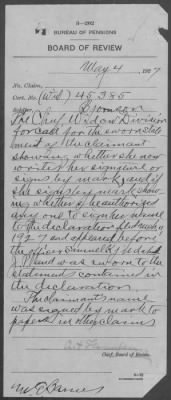 3—2902
BUREAU OF PENSIONS
BOARD OF REVIEW
May 4, 1927
No. Claim,
Cert. No. (Wd) 45385
The Chief Widow Division
to call for the sworn state
ment of the claimant
showing whether she now
writes her signature or
signs by mark, and if
she signs by mark, show
ing whether she authorized
any one to sign her name
to the declaration filed
1927 and appeared before
the officer Samuel
and was sworn to the
statement contained in
the declaration.
The claimant's name
was signed by mark to
papers in other claims
Chief, Board of Review.